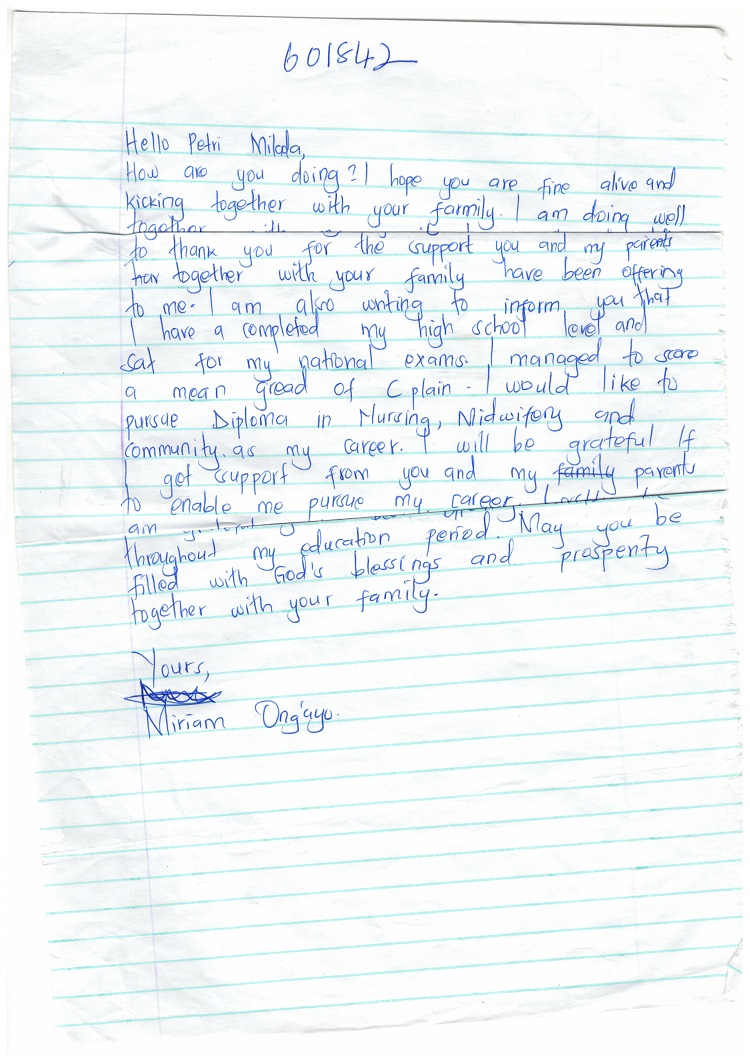 601842
Hello Petri Milada,
How are you doing? I hope you are fine alive and
kicking together with your farmily. I am doing well
together
to thank you for the support you and my parents
together with your family have been offering
to me. I am also writing to inform you that
I have a completed my high school level and
sat for my national exams. I managed to score
a mean gread of C plain. I would like to
pursue Diploma in Nursing, Midwifery and
community. as my career. I will be grateful If
I get support from you and my family parents
to enable me pursue my career.
am
throughout my education period. May you be
filled with God's blessings and prosperity
together with your family.
Yours,
Miriam Ong'ayo.